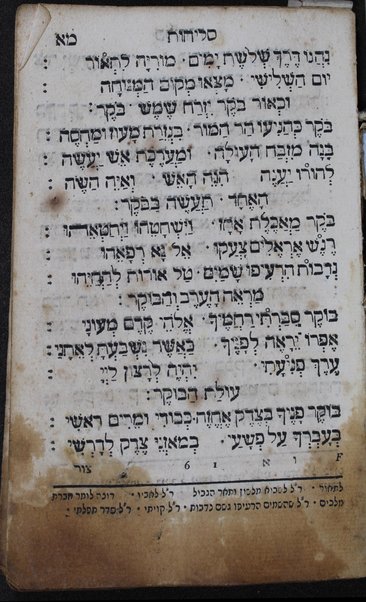 סליחות מא
נהגו דרך שלשת ימים · מוריה לתאור :
יום השלישי · מצאו מקום המנוחה
וכאור בקר יזרח שמש · בקר :
בקר כהגיעו הר המור · בגזרת מעוז ומחסה
בנה מזבח העולה · ומערכת אש יעשה :
להורו יענה הנה האש · ואיה השה
האחד · תעשה בבקר :
בקר מאכלת אחז · וישחטהו ויחטאהו :
רגש אראלים צעקו · אל נא רפאהו :
נדבות הרעיפו שמים · טל אורות להחיהו
מראה הערב והבוקר :
בוקר סברתי רחמיך · אלהי קדם מעוני
אפרו יראה לפניך · כאשר נשבעת לאתני :
ערך פגיעתי · יהיה לרצון ליי :
עולת הבוקר :
בוקר פניך בצדק אחזה כבודי ומרים ראשי
בעברך על פשעי · במאזני צדק לדרשי :
F ו א 61 צור
לתאור · ר"ל לשבוא מלשון ותאר הגבול ר"ל לאביו ·
מלכים · ר"ל שהשמים הרעיפו גשם נדבות · ר"ל קויתי · ר"ל סדר תפלתי ·